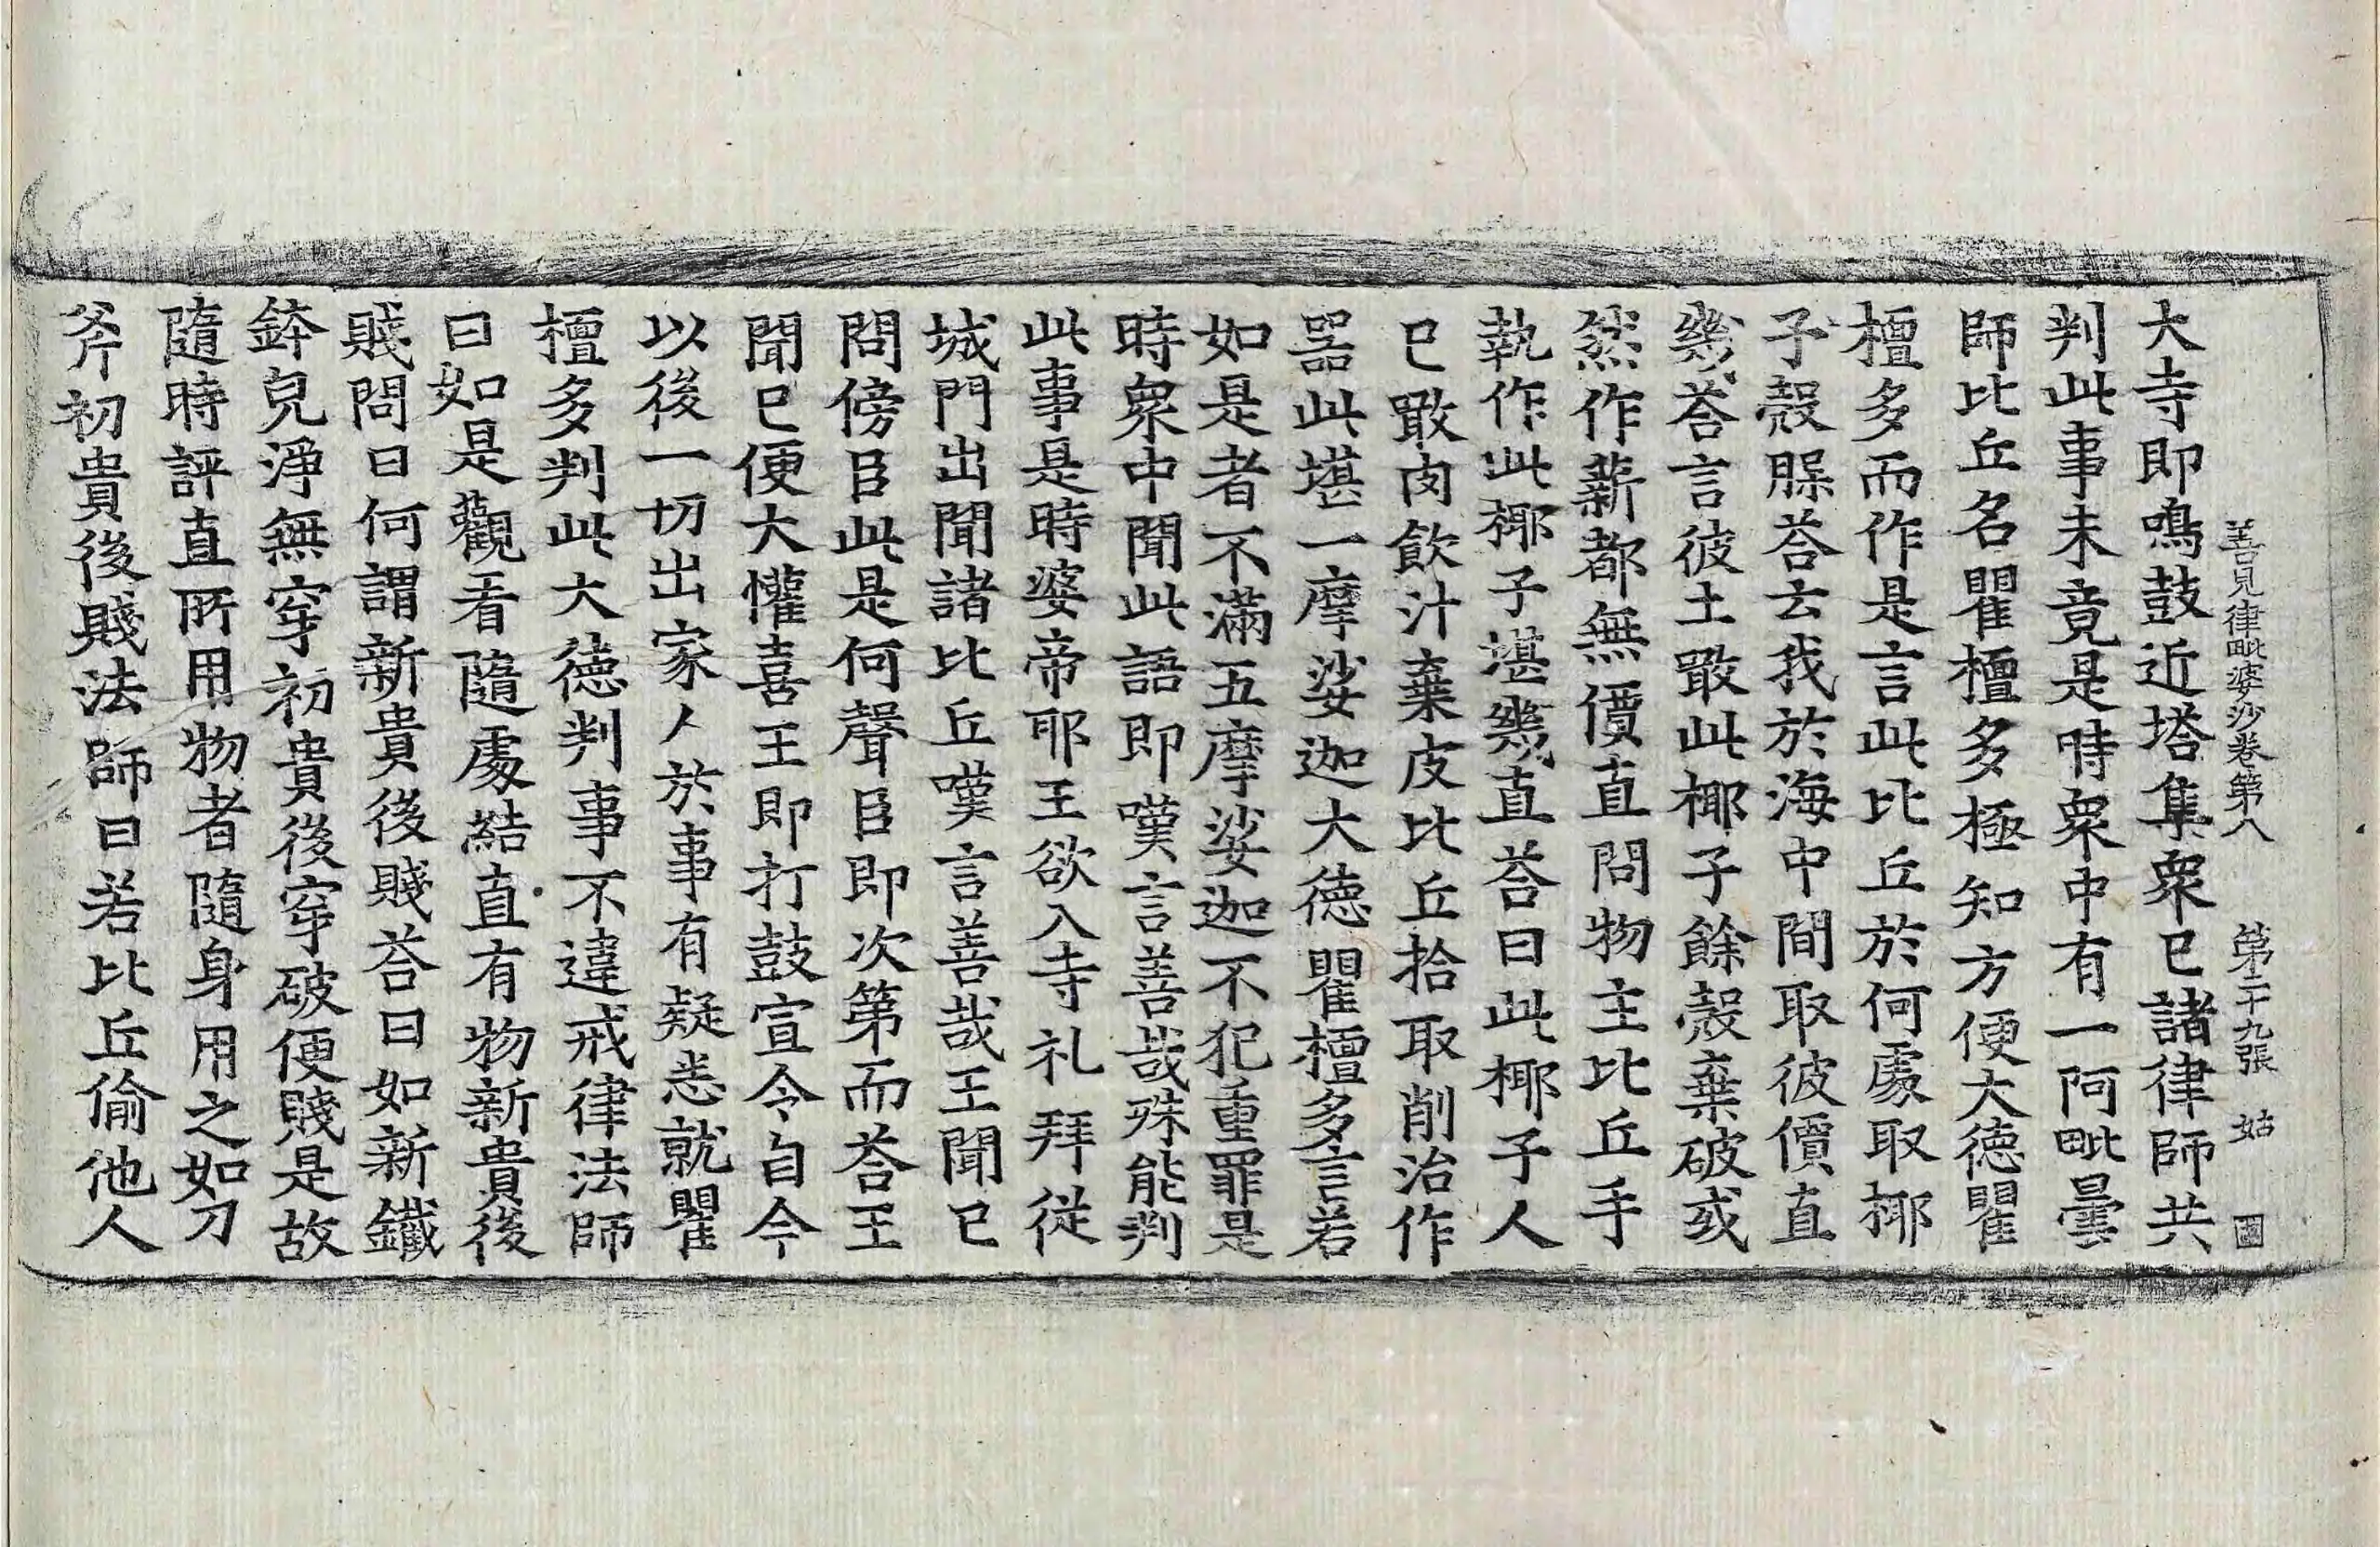 善見律毗婆沙卷第八 第二十九張 姑
大寺即鳴鼓近塔集衆已諸律師共
判此事未竟是時衆中有一阿毗曇
師比丘名瞿檀多極知方便大德瞿
檀多而作是言此比丘於何處取椰
子殼䐗荅去我於海中間取彼價直
幾荅言彼土噉此椰子餘殼棄破或
然作薪都無價直問物主比丘手
執作此椰子堪幾直荅曰此椰子人
已噉肉飲汁棄皮比丘拾取削治作
器此堪一摩娑迦大德瞿檀多言若
如是者不滿五摩娑迦不犯重罪是
時衆中聞此語即嘆言善哉殊能判
此事是時婆帝耶王欲入寺礼拜從
城門出聞諸比丘嘆言善哉王聞已
問傍臣此是何聲臣即次第而荅王
聞已便大懽喜王即打鼓宣令自今
以後一切出家人於事有疑悉就瞿
檀多判此大德判事不違戒律法師
曰如是觀看隨處結直有物新貴後
賤問曰何謂新貴後賤荅曰如新鐵
鉢皃淨無穿初貴後穿破便賤是故
隨時評直所用物者隨身用之如刀
斧初貴後賤法師曰若比丘偷他人